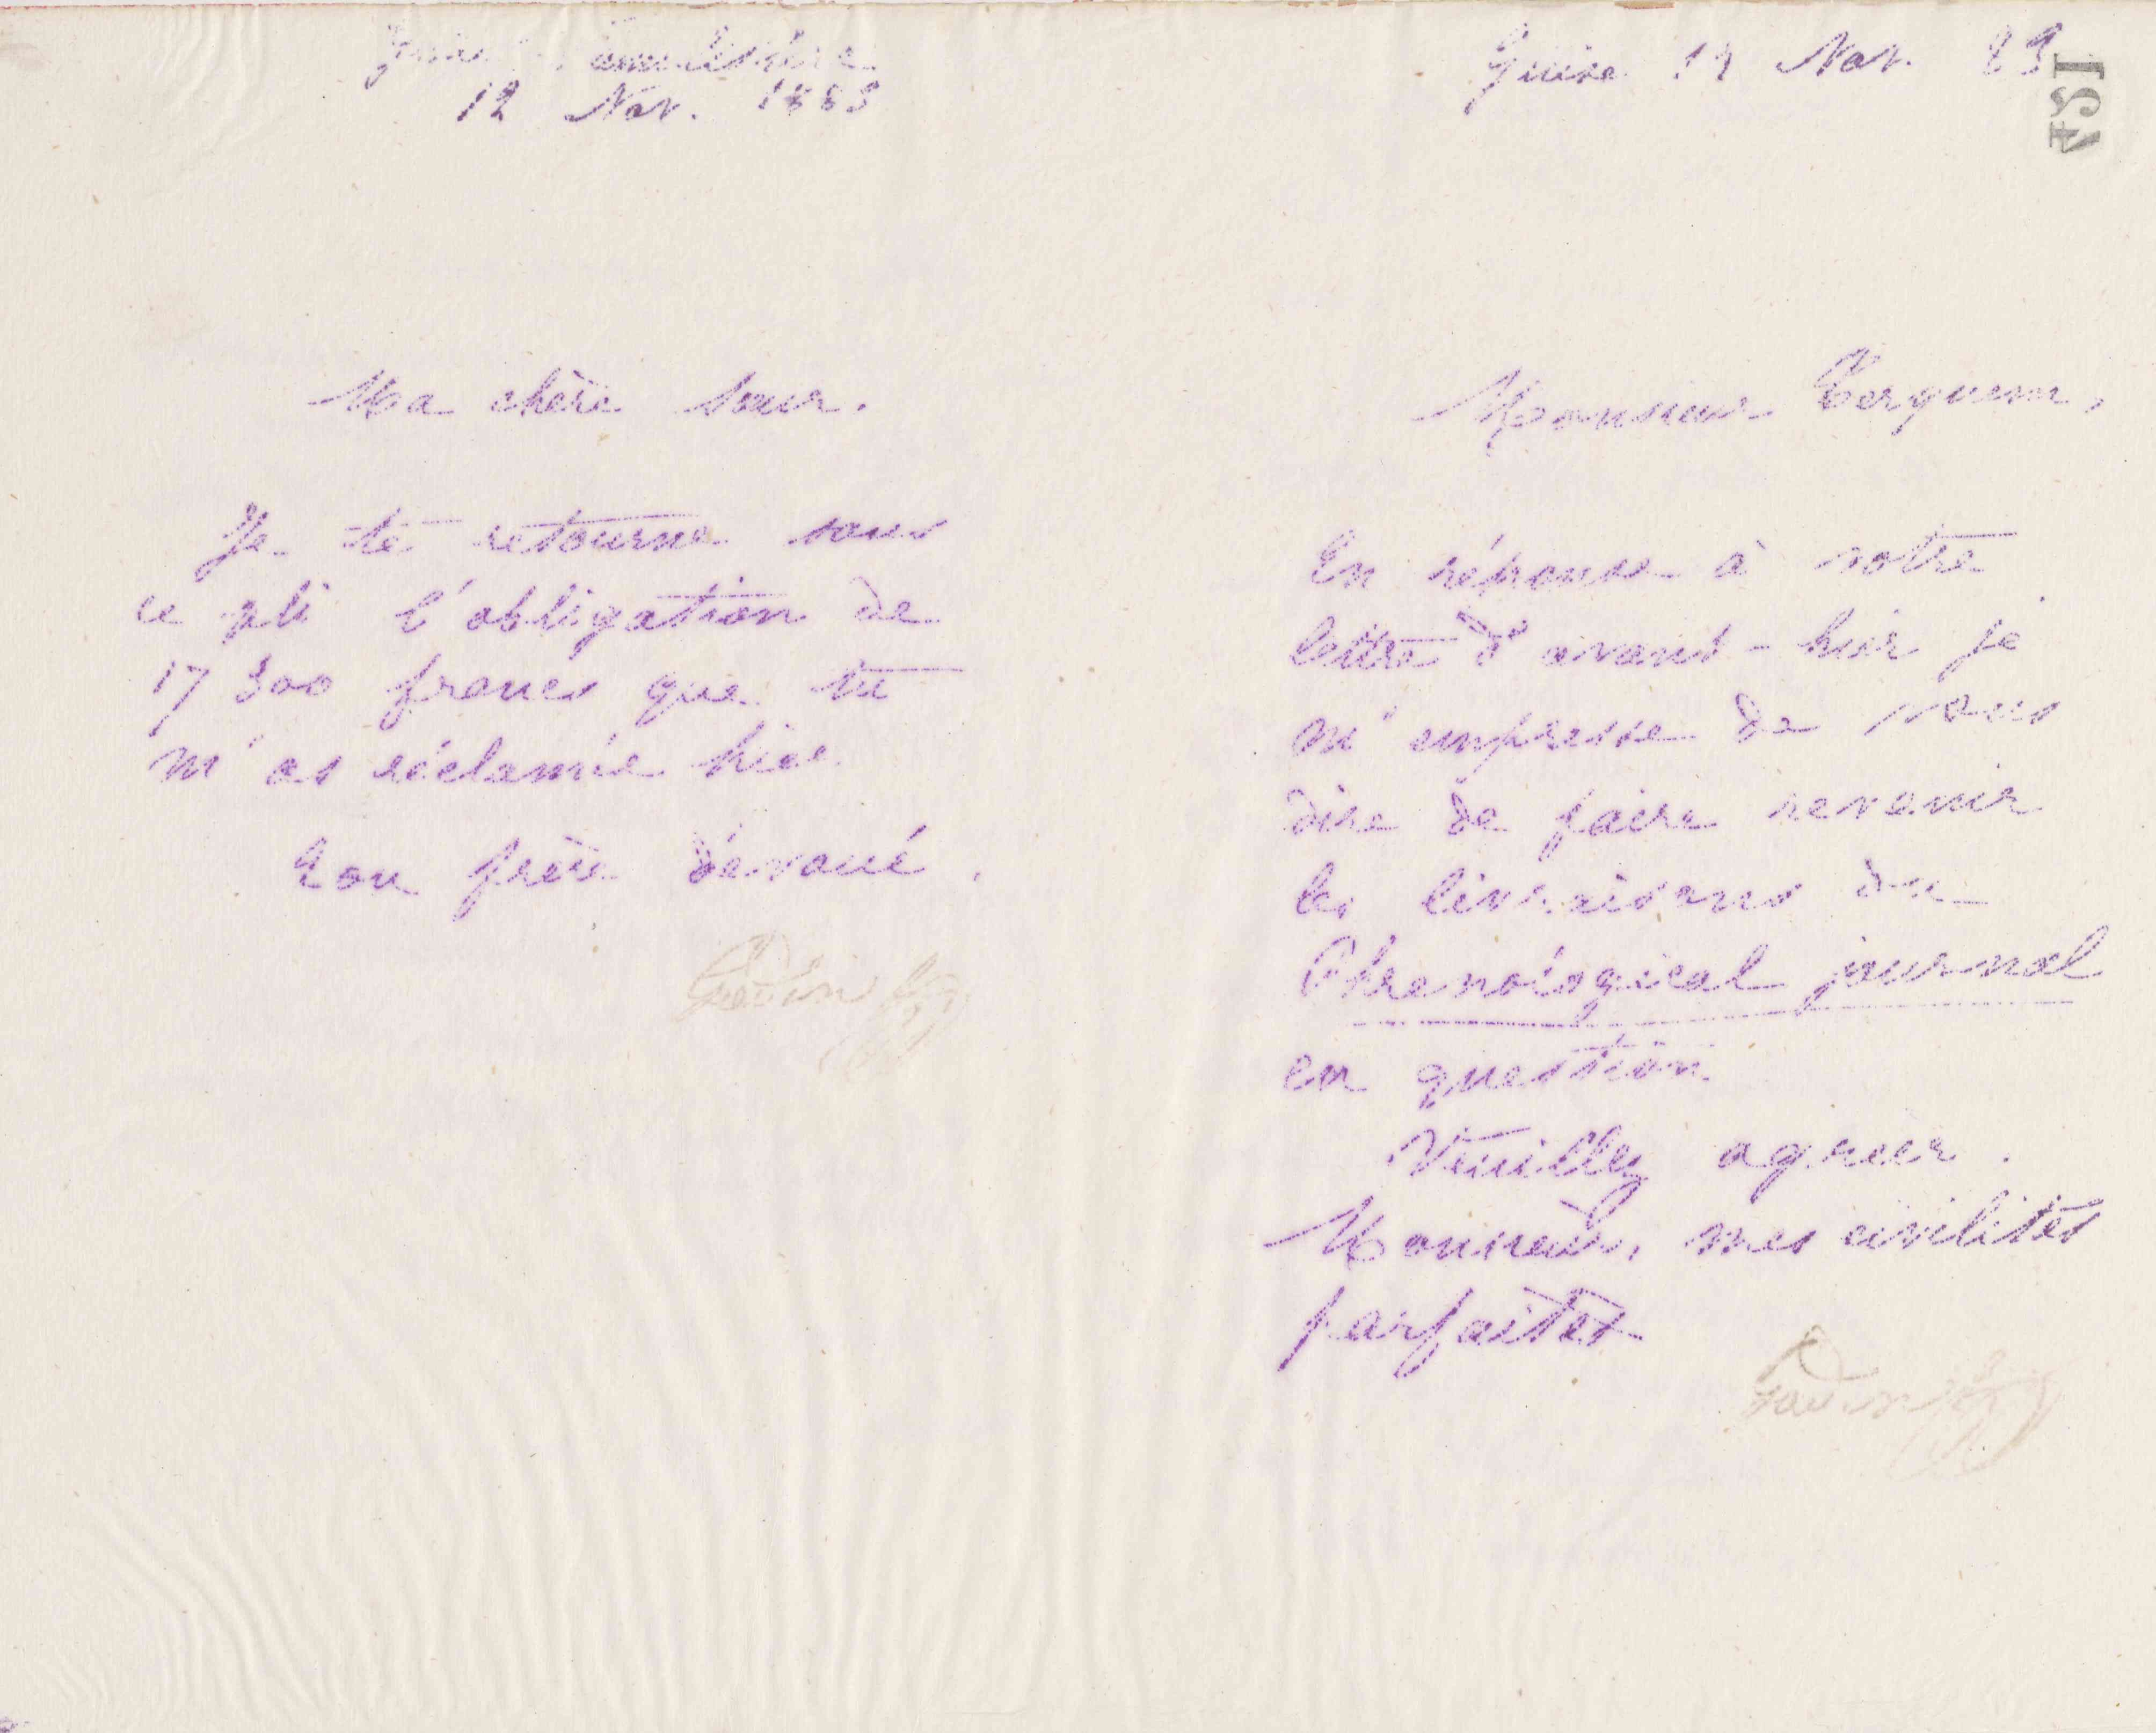 Guise Familistère
12 Nov. 1883
Ma chère sœur.
Je te retourne sous
ce pli l'obligation de
17 300 francs que tu
m'as réclamée hier.
Ton frère dévoué.
Godin
Guise 12 Nov. 83
154
Monsieur Terquem,
En réponse à votre
lettre d'avant-hier je
m'empresse de vous
dire de faire revenir
les livraisons du
Phrenological journal
en question.
Veuillez agréer.
Monsieur, mes civilités
parfaites
Godin